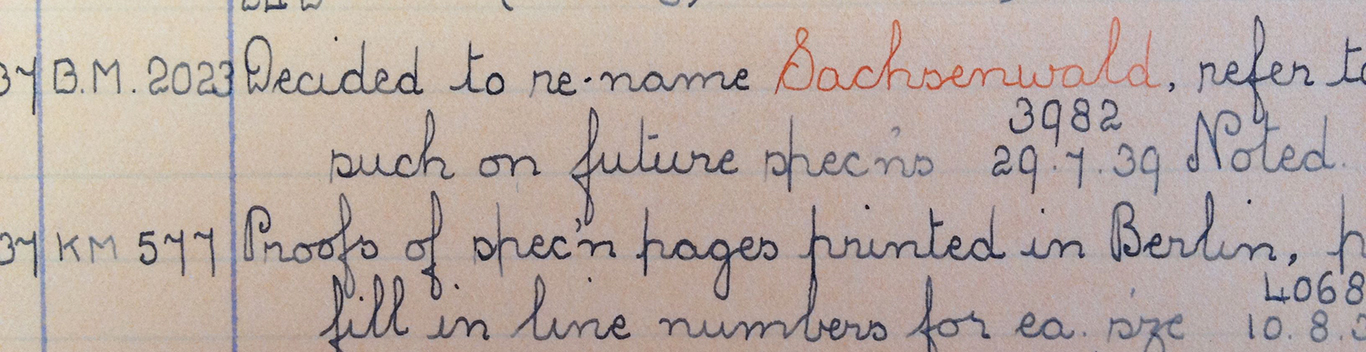 37 B.M. 2023 Decided to re-name Sachsenwald, refer to
3982
such on future spec'ns 29.7.39 Noted.
37 KM 577 Proofs of spec'n pages printed in Berlin, p
4068
fill in line numbers for ea. size 10.8.3